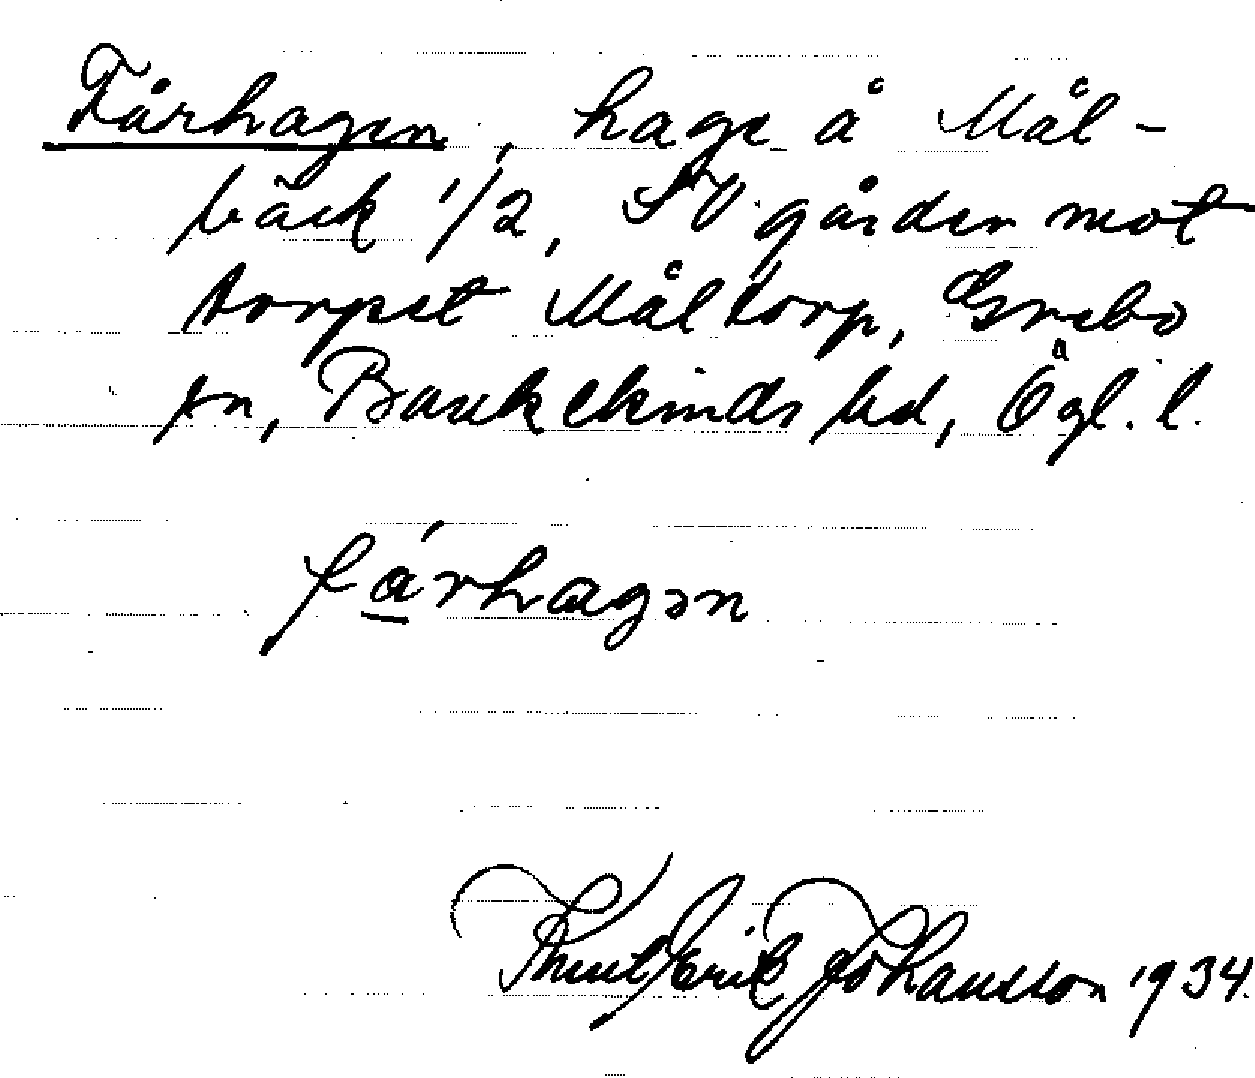 Fårhagen, hage å Mål-
bäck 1/2, SV gården mot
torpet Måltorp, Grebo
sn, Bankekinds hd, Ögl. l.
fárhagən
Knut Erik Johansson 1934.